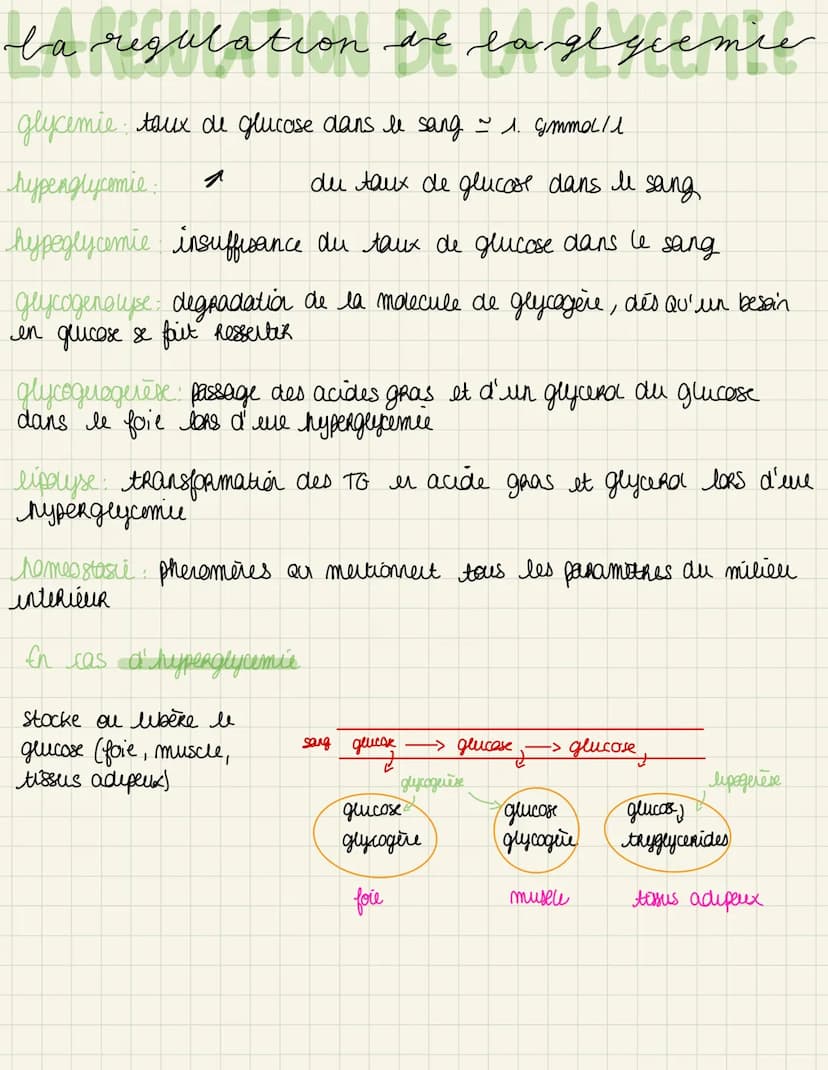 LA REGULATION DE LA GLYCEMIE
la regulation de la glycemie
glycemie : taux de glucose dans le sang ≃ 1. Gmmol/l
hyperglycemie : ↗ du taux de glucose dans le sang
hypeglycemie : insuffisance du taux de glucose dans le sang
glycogenolyse : degradation de la molecule de glycogène, dès qu'un besoin
en glucose se fait ressentir
passage des acides gras et d'un glycerol du glucose
dans le foie lors d'une hyperglycemie
lipolyse : transformation des TG en acide gras et glycerol lors d'une
hyperglycemie
homeostasie : phenomènes qui mentionnent tous les paramètres du milieu
interieur
En cas d'hyperglycemie
stocke ou libère le
glucose (foie, muscle,
tissus adipeux)
sang glucose → glucose → glucose
glycogenèse lipogenèse
glucose glucose glucose
glycogène glycogène tryglycerides
foie muscle tissus adipeux